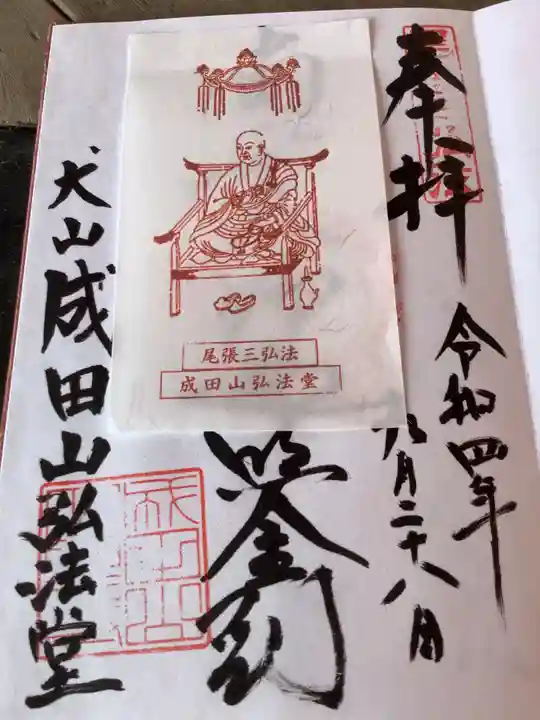 奉拝
令和四年
九月二十八日
尾張三弘法
成田山弘法堂
照金剛
犬山成田山弘法堂